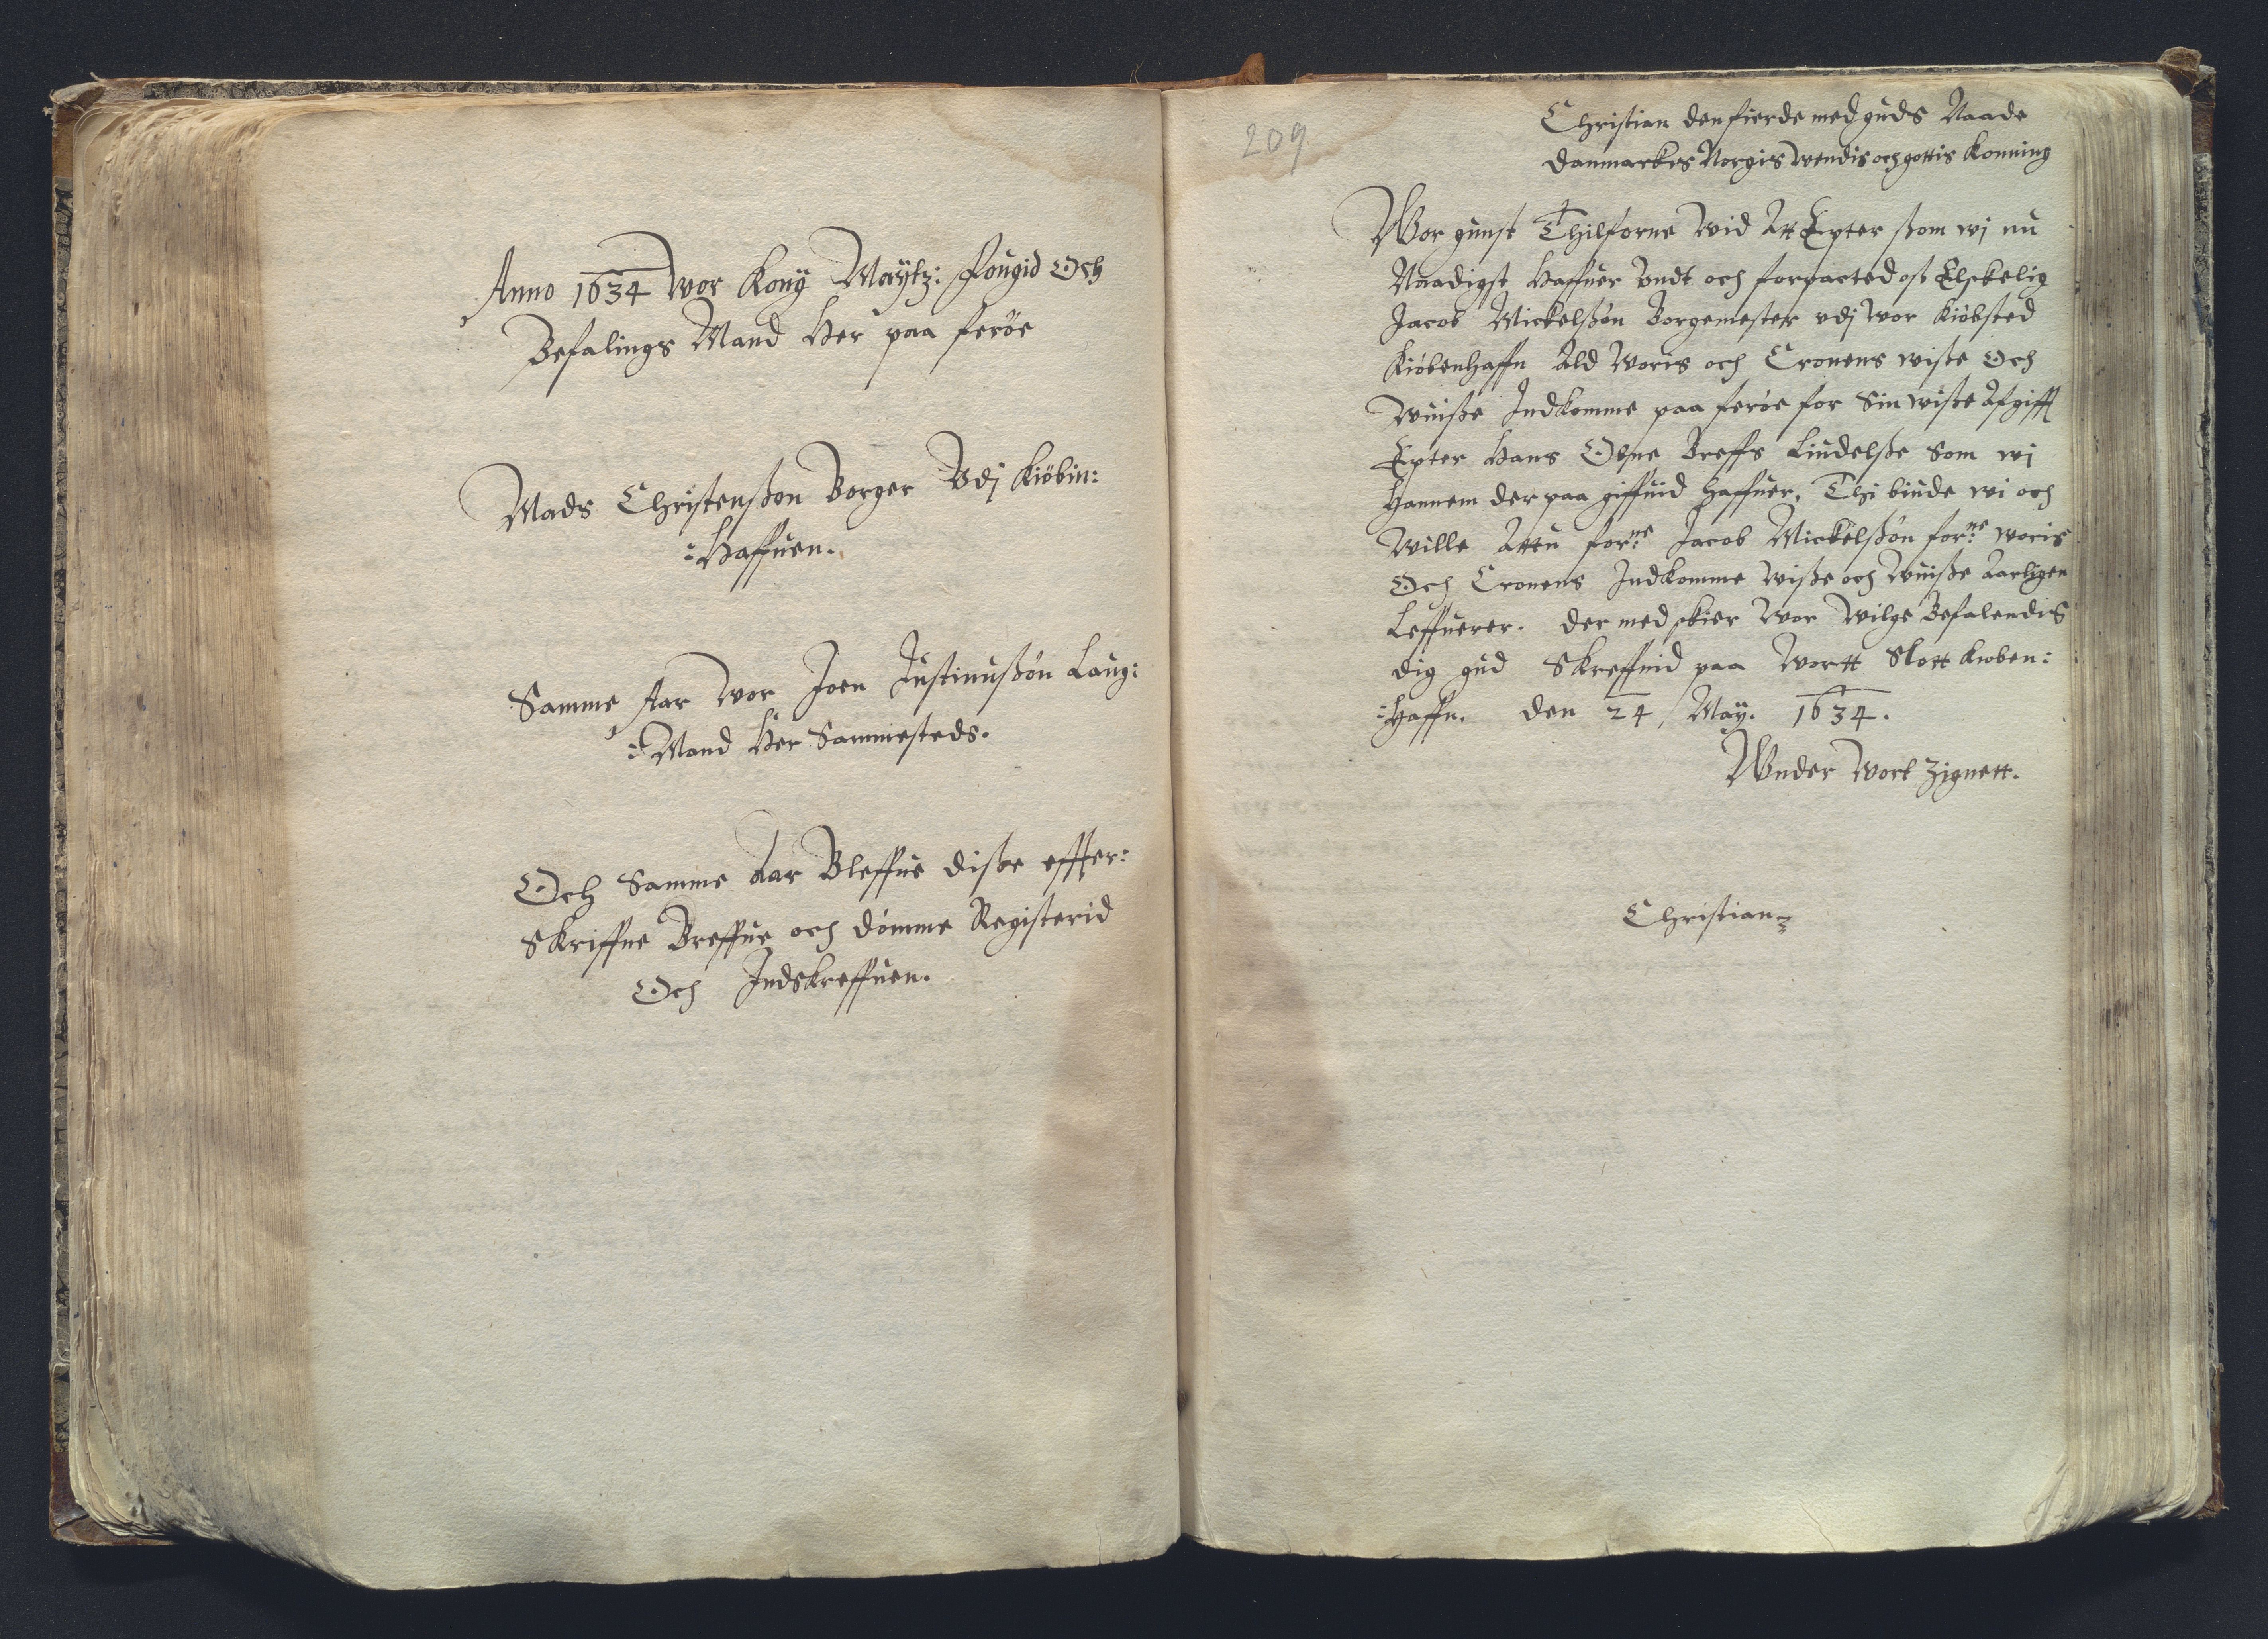 Anno 1634 Wor Kong Maytz: Fougid Och
Befalings Mand Her paa Feröe
Mads Christenßøn Borger Vdj Kiöbin:
:Haffuen.
Samme Aar Wor Joen Justinußøn Laug:
:Mand Her Sammesteds.
Och Samme Aar Bleffue diße effter:
Skriffne Breffue och Dömme Registerid
Och Indskreffuen.
209
Christian den fierde med guds Naade
Danmarkes Norgis Wendis och gottis Konning
Wor gunst Thilforne Wid Att Epter ßom wj nu
Naadigst Haffuer Vndt och forpacted oß Elskelig
Jacob Mickelßøn Borgemester vdj Wor Kiöbsted
Kiöbenhaffn Ald Woris och Cronens wiße Och
Wuiße Indkomme paa feröe for Sin wiße Afgifft
Epter Hans Obne Breffs Liudelße Som wj
Hannem der paa giffuid haffuer, Thi biude wi och
Wille Attu forne Jacob Mickelßøn forne woris
Och Cronens Indkomme Wiße och Wuiße Aarligen
Leffuerer. Der med skier Wor Wilge Befalendis
dig gud Skreffuid paa Wortt Slott Kioben:
:Haffn. Den 24, May. 1634.
Wnder Wort Zignett.
Christian